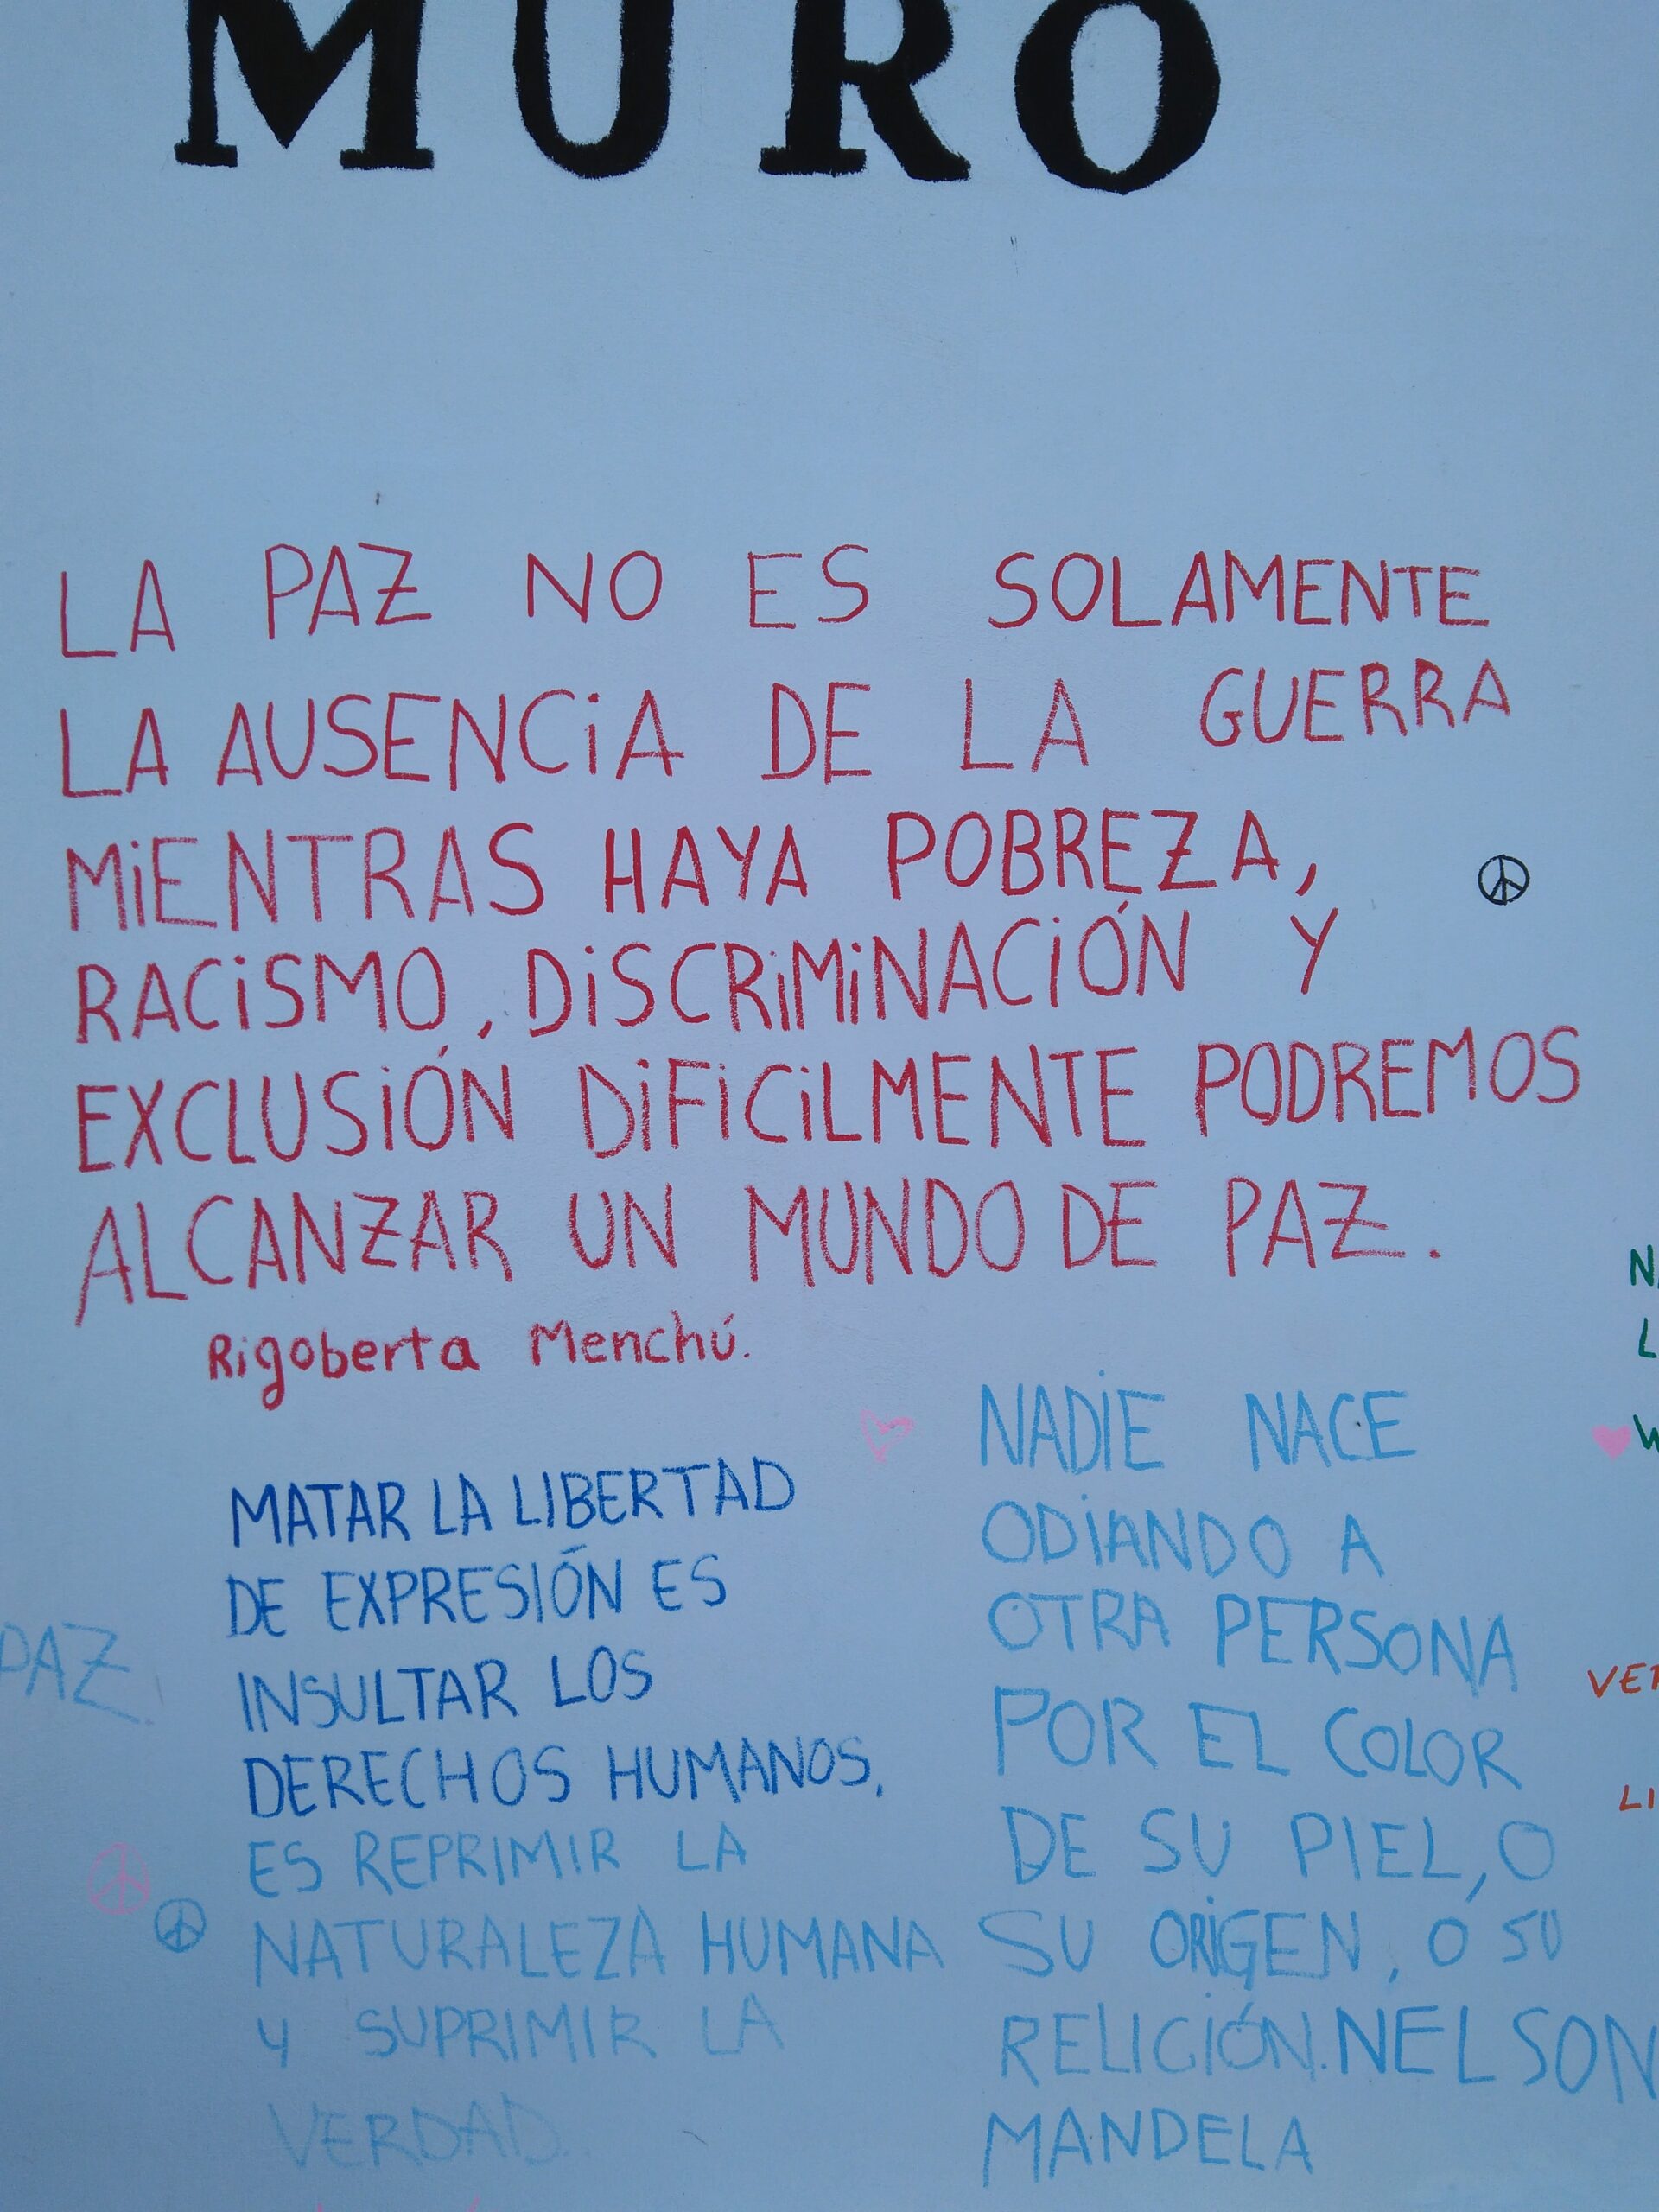 MURO
LA PAZ NO ES SOLAMENTE
LA AUSENCiA DE LA GUERRA
MiENTRAS HAYA POBREZA,
RACiSMO, DiSCRiMiNACiÓN Y
EXCLUSiÓN DiFiCiLMENTE PODREMOS
ALCANZAR UN MUNDO DE PAZ.
Rigoberta Menchú.
MATAR LA LIBERTAD
DE EXPRESIÓN ES
INSULTAR LOS
DERECHOS HUMANOS,
ES REPRIMIR LA
NATURALEZA HUMANA
y SUPRIMIR LA
VERDAD.
NADiE NACE
ODiANDO A
OTRA PERSONA
POR EL COLOR
DE SU PIEL, O
SU ORiGEN, O SU
RELIGIÓN. NELSON
MANDELA
PAZ.
N
L
W
VER
LI